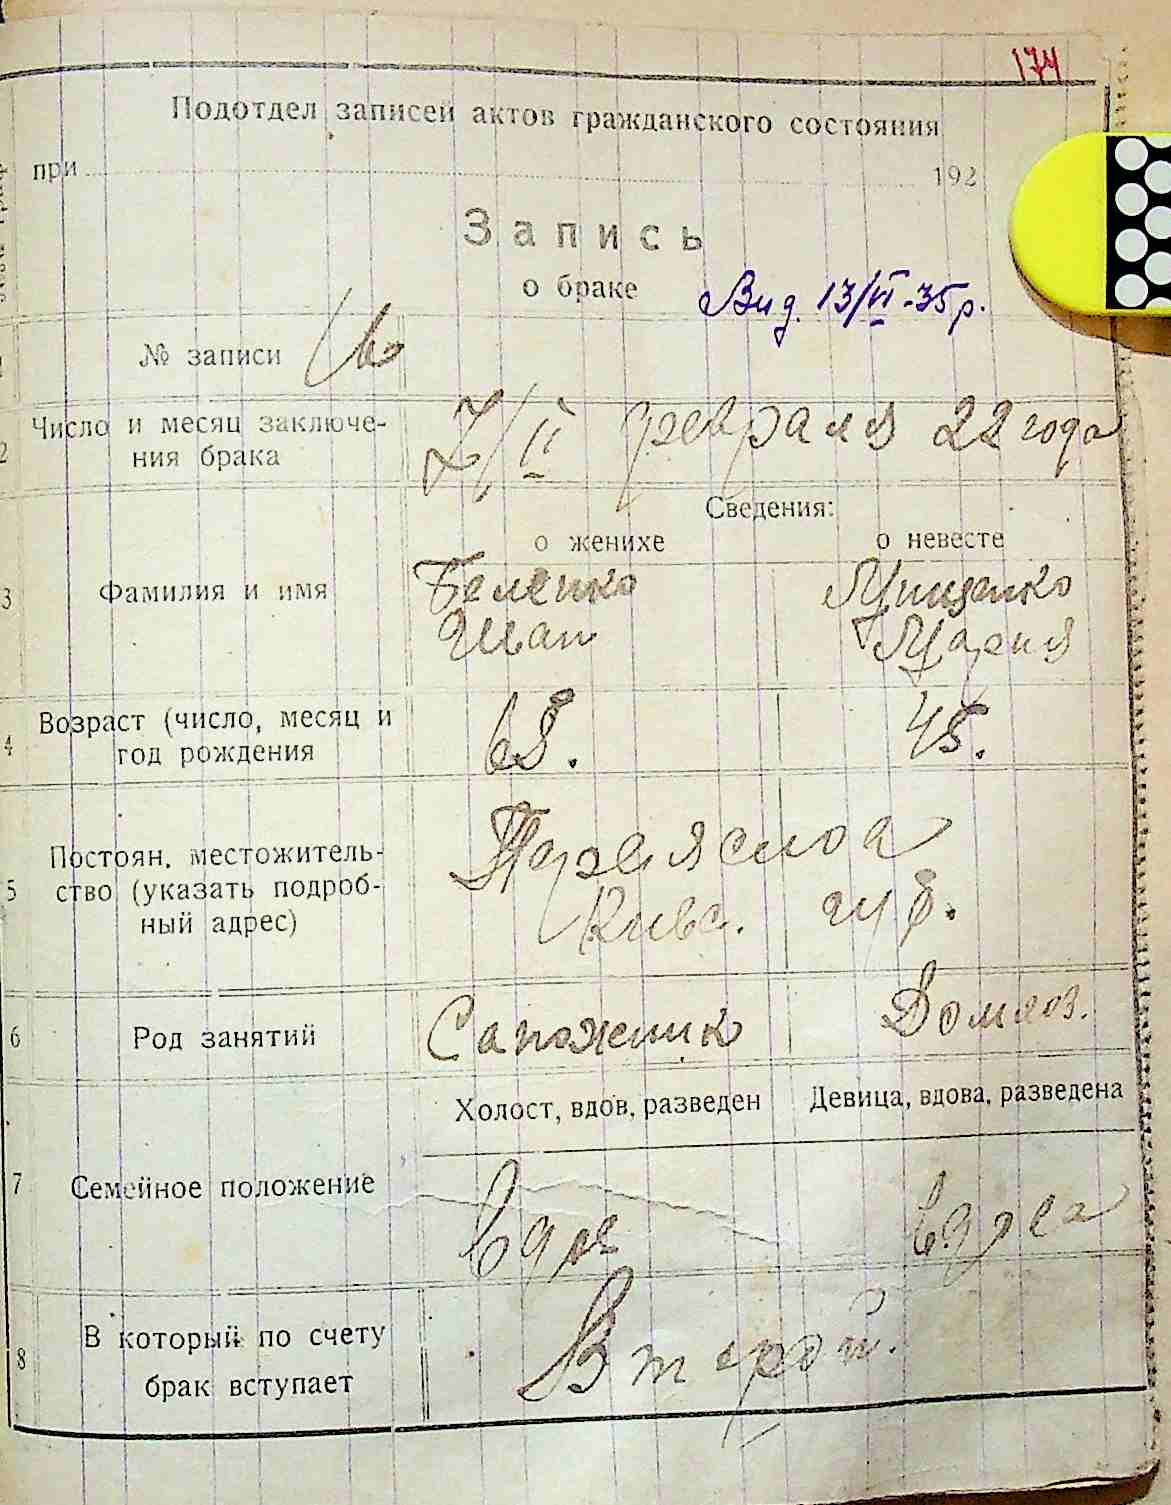 174
Подотдел записей актов гражданского состояния
при 192
Запись
о браке Вид. 13/VI-35р.
№ записи
2 Число и месяц заключе-
ния брака
7/II февраля 22 года
Сведения:
о женихе о невесте
3 Фамилия и имя
Беленко
Иван
Мария
4 Возраст (число, месяц и
год рождения
68. 45.
5 Постоян. местожитель-
ство (указать подроб-
ный адрес)
Киевс. губ.
6 Род занятий Сапожник Домхоз.
Холост, вдов, разведен Девица, вдова, разведена
7 Семейное положение
вдов вдова
8 В который по счету
брак вступает
Второй.